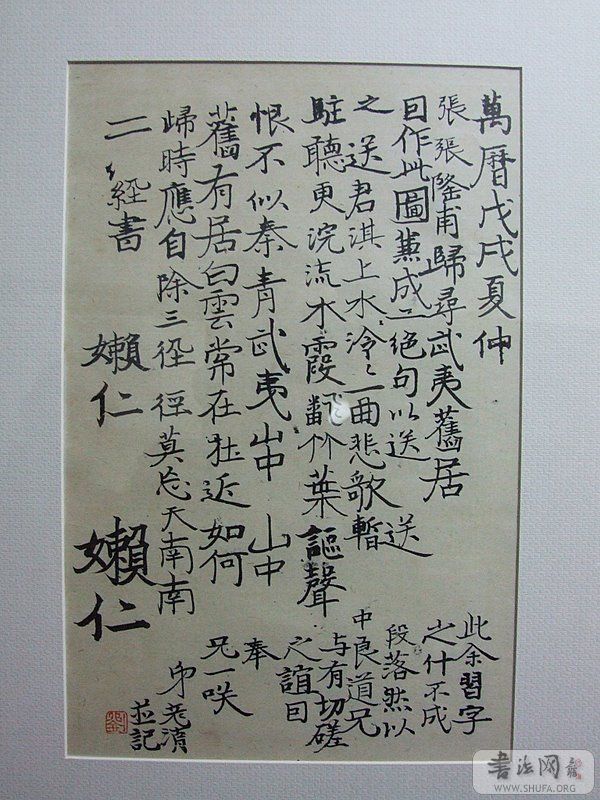 萬曆戊戌夏仲
張張隆甫歸尋武夷舊居
囙作此圖蕪成二絕句以送送
之送君淇上水泠〻一曲悲歌暫
駐聽更浣流水霞翻竹葉謳聲
恨不似秦青武夷山中山中
舊有居白雲常在近如何
歸時應自除三徑徑莫忘天南南
二〻經書
嬾仁
嬾仁
此余習字
之什不成
段落然以
中良道兄
与有切磋
之誼囙
奉
兄一咲
弟老清
並記
書法网
WWW.SHUFA.ORG